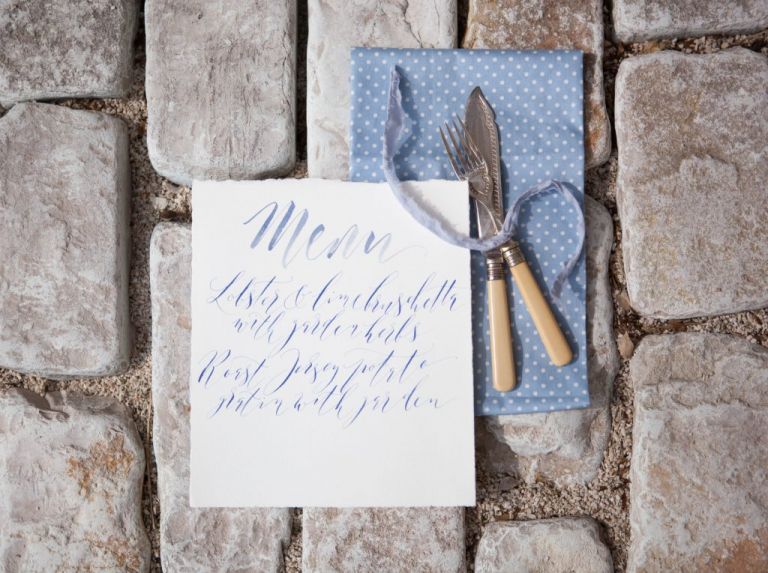 Menu
Lobster & lime bruschetta
with garden herbs
Roast Jersey potato
gratin with garden